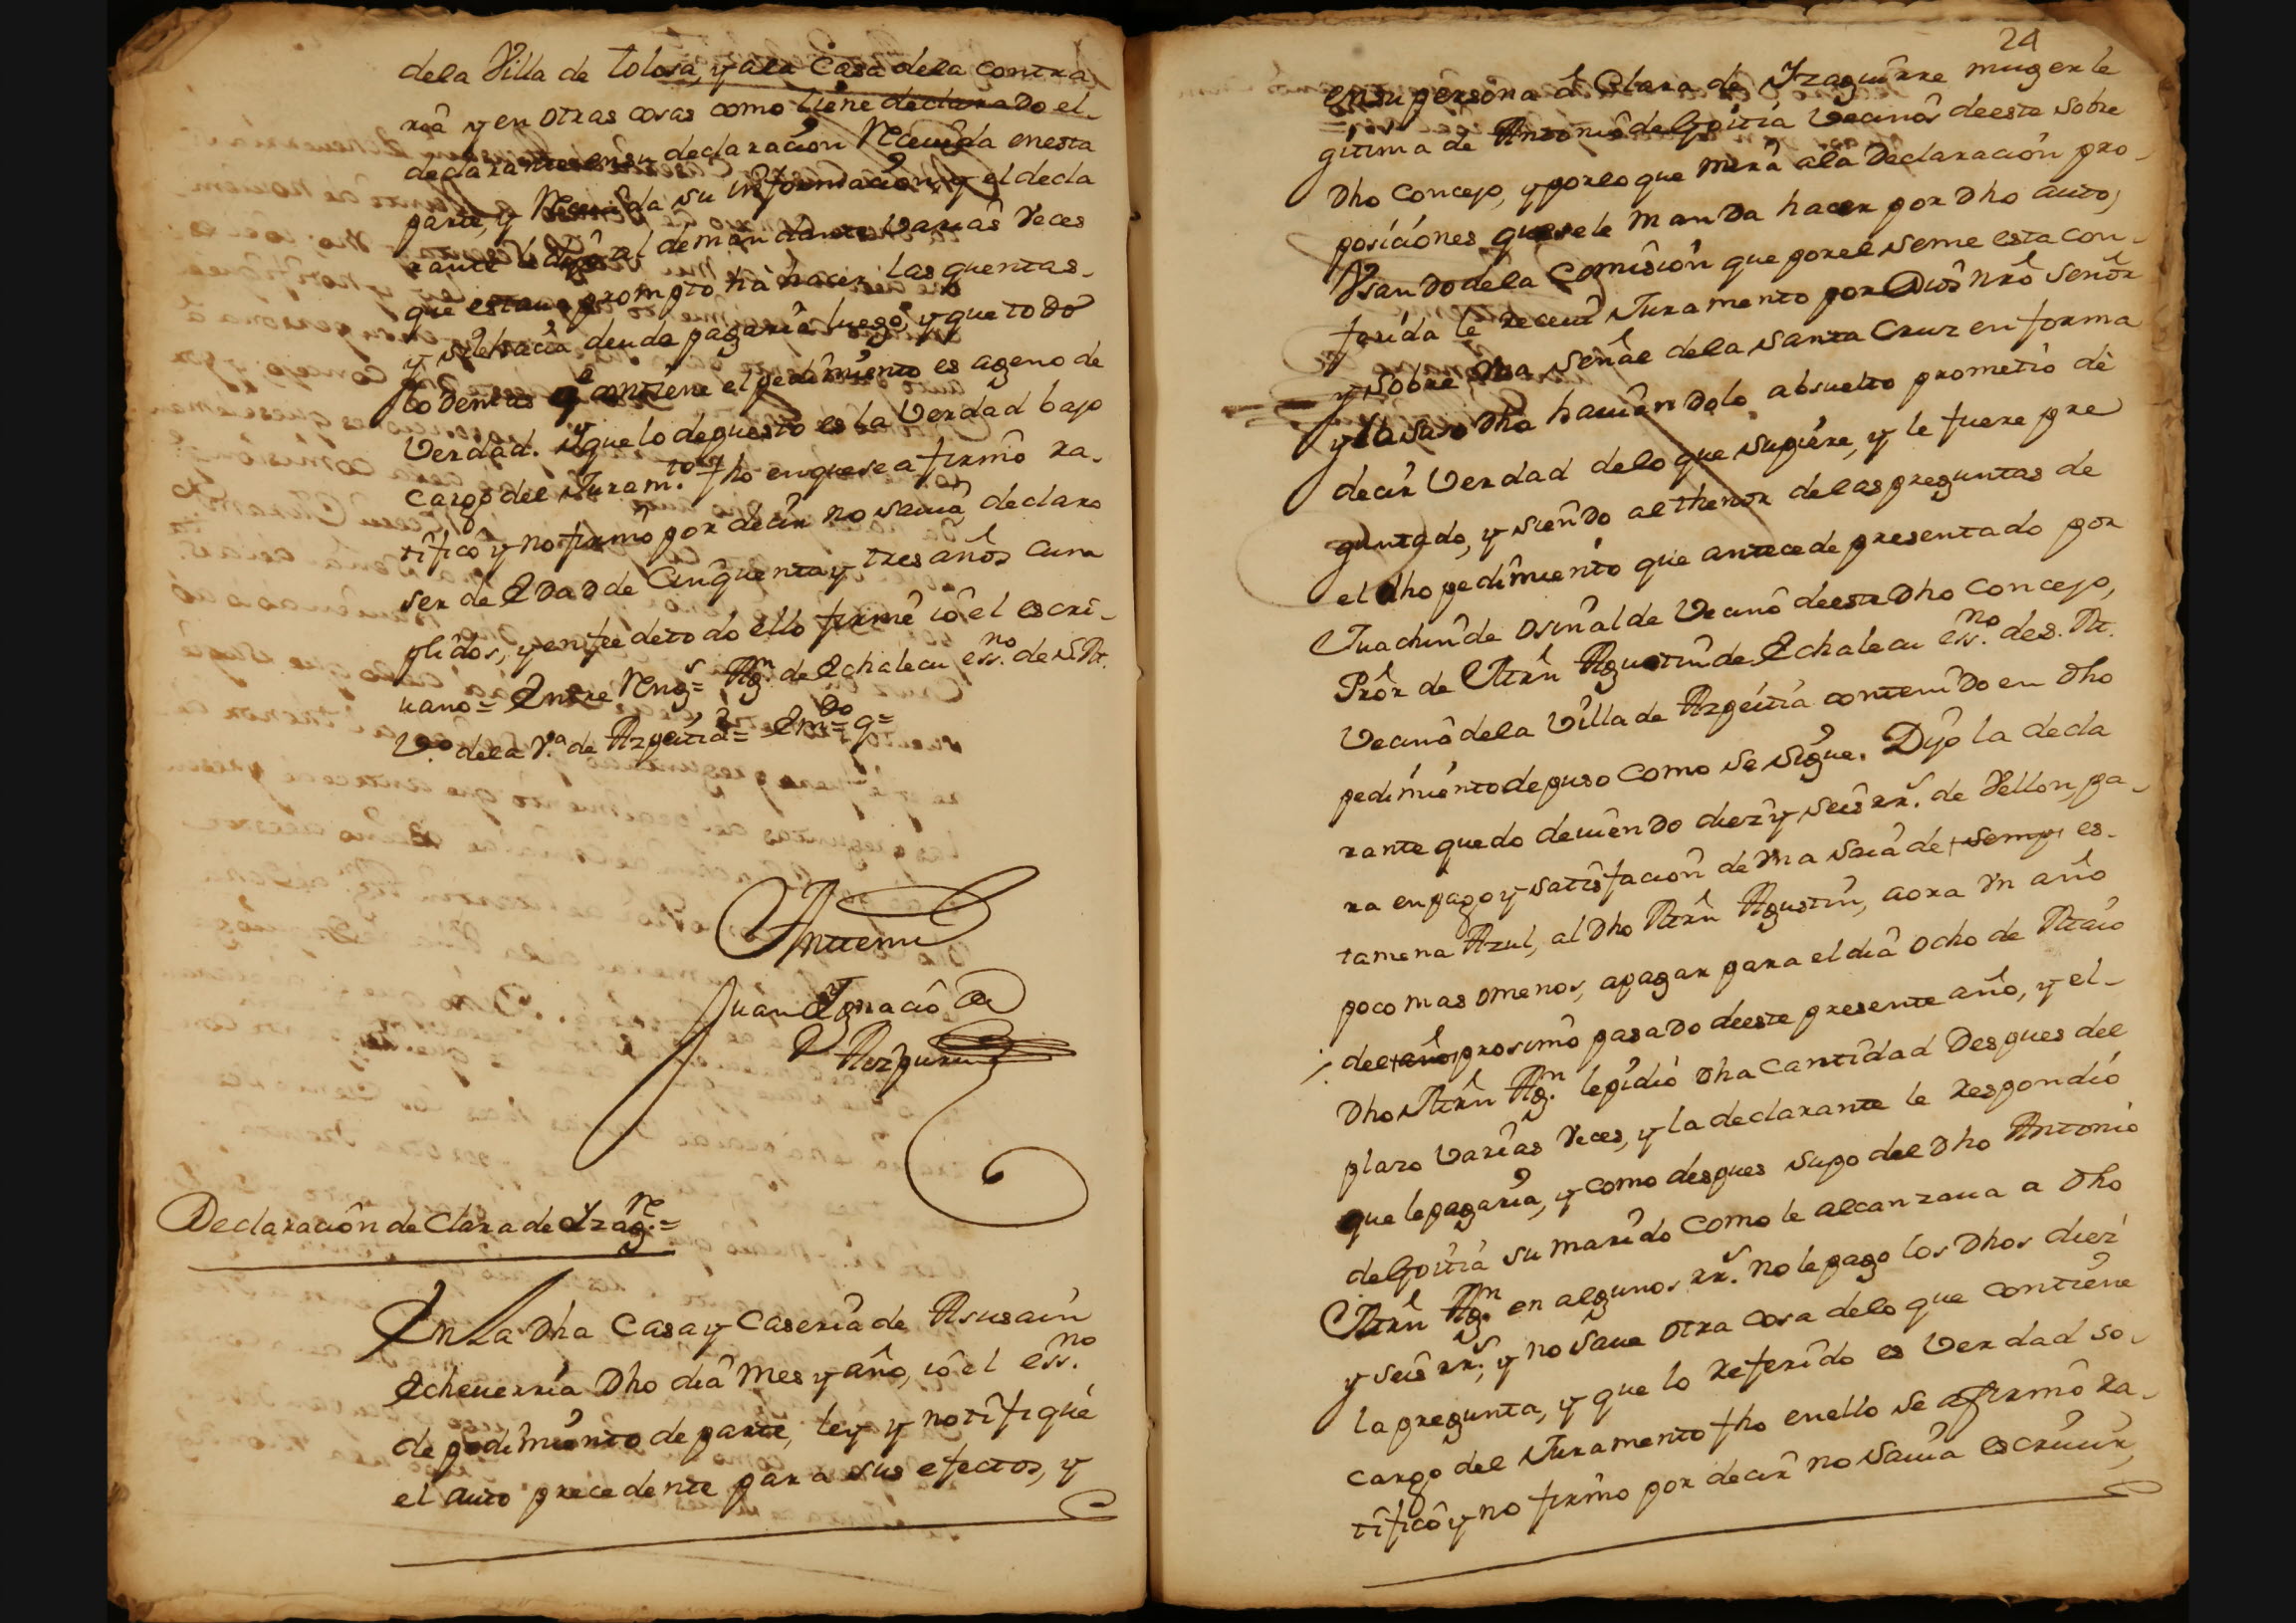 dela Villa de Tolosa, y ala Casa dela contra
ria y en otras cosas como tiene declarado el
declarante en su declaracion Receuida enesta
parte, y Receuida su informacion, y el decla
rante le dijo al demandante Varias Veces
que estaua prompto hà hacer las quentas
y si le hacia deuda pagaria luego, y que todo
lo demas q̃ contiene el pedimiento es ageno de
Verdad. y que lo depuesto es la Verdad bajo
cargo del Juram.to fho enquese afirmô ra-
tificô y no firmô por decir no sauia declaro
ser de Edad de Cinquenta y tres años cum
plidos, y enfee detodo ello firmê iô el escri-
uano = Entre Reng.s = Ag.n de Echalecu ess.no de S. M.
V.o dela V.a de Azpeitia = Em.do = q =
Antemi
Juan Ignacio de
Aizpuru
Declaraciôn de Clara de Yzag.re =
En La Dha Casa y Caseria de Asusain
Echeuerria Dho dia Mes y año, iô el ess.no
de pedimiento de parte, ley y notifiquê
el auto precedente para sus efectos, y
24
ensu persona â Clara de Yzaguirre muger le
gitima de Antonio de Goitia Vecinôs deeste sobre
Dho Concejo, y porloque mira ala Declaraciôn pro-
posiciones quesele manda hacer por Dho auto,
Vsando dela Comisiôn que porel seme esta con-
ferida le receui Juramento por Dios nrô señor
y sobre Vna señal dela santa Cruz en forma
y la suso Dha hauiendolo absuelto prometiô de
decir Verdad delo que supiere, y le fuere pre
guntado, y siendo al thenor delas preguntas de
el dho pedimiento que antecede presentado por
Juachin de Osinalde Vecino deeste Dho Concejo,
Prôr de Mrn Agustin de Echalecu ess.no de S. M.
Vecino dela Villa de Azpeitia contenido en Dho
pedimiento depuso como se sigue. Dijo la decla
rante quedo deuiendo diez y seis rr.s de Vellon, pa-
ra en pago y satisfacion de Vna saia de sempi es-
tamena Azul, al Dho Mrn Agustin, aora Vn año
poco mas omenos, apagar para el dia ocho de Maio
del año proximo pasado deeste presente año, y el-
Dho Mrn Ag.n lepidiô Dha Cantidad Despues del
plazo Varias Veces, y la declarante le respondiô
que lepagaria, y como despues supo del Dho Antonio
deGoitia su marido como le alcanzaua a Dho
Mrn Ag.n en algunos rr.s no lepago los Dhos diez
y seis rr.s, y no saue otra cosa delo que contiene
la pregunta, y que lo referido es Verdad so
cargo del Juramento fho enello se afirmô ra-
tificô y no firmo por decir no sauia escriuir,